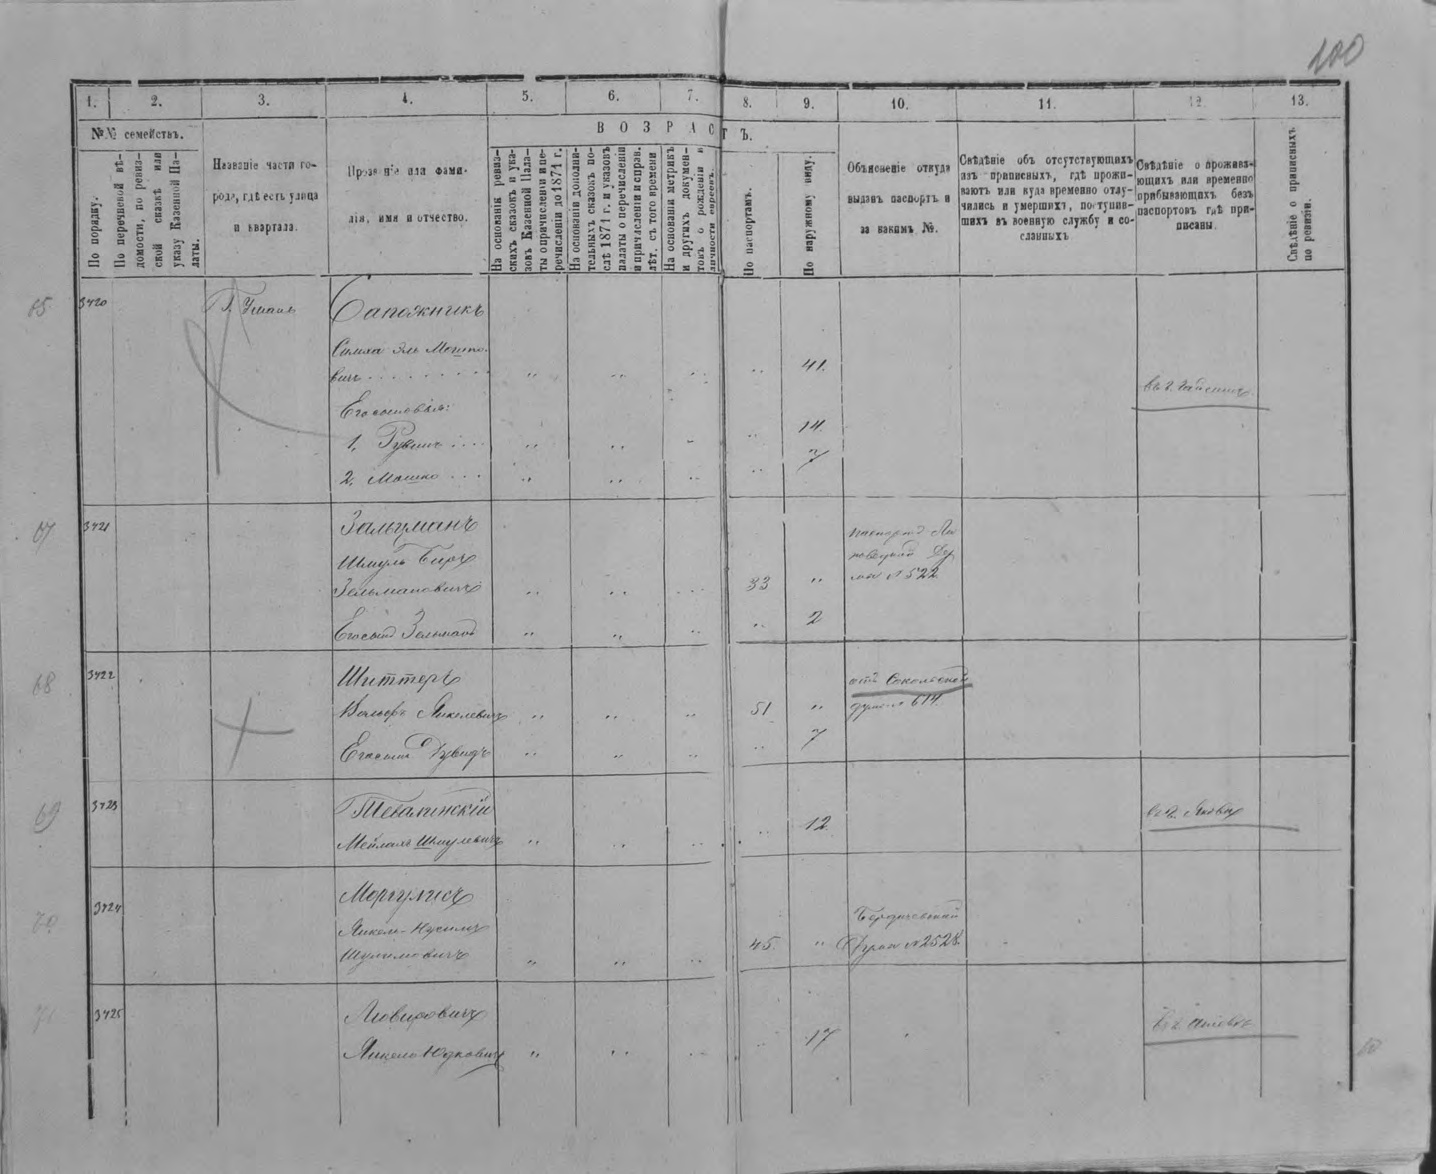 100
1. 2. 3. 4. 5. 6. 7. 8. 9. 10. 11. 12. 13.
№№ семействъ.
По порядку.
По перечневой вѣ-
домости, по ревиз-
ской сказкѣ или
указу Казенной Па-
латы.
Названіе части го-
рода, гдѣ есть улица
и квартала.
Прозваніе или фами-
лія, имя и отчество.
ВОЗРАСТЪ.
На основаніи ревиз-
скихъ сказокъ и ука-
зовъ Казенной Пала-
ты о причисленіи и пе-
речисленіи до 1871 г.
На основаніи дополни-
тельныхъ сказокъ по-
слѣ 1871 г. и указовъ
палаты о перечисленіи
и причисленіи и справ.
лѣт. съ того времени
На основаніи метрикъ
и другихъ докумен-
товъ о рожденіи и
личности евреевъ.
По паспортамъ.
По наружному виду.
Объясненіе откуда
выданъ паспортъ и
за какимъ №.
Свѣдѣніе объ отсутствующихъ
изъ приписныхъ, гдѣ прожи-
ваютъ или куда временно отлу-
чились и умершихъ, поступив-
шихъ въ военную службу и со-
сланныхъ
Свѣдѣніе о прожива-
ющихъ или временно
прибывающихъ безъ
паспортовъ гдѣ при-
писаны.
Свѣдѣніе о приписныхъ
по ревизіи.
65 3420 Г. Умань Сапожникъ
Симха Эль Мошко-
вичъ 41
въ г. Гайсинѣ
Его сыновья:
1. Рувинъ 14
2. Мошко 7
67 3421 Зальцманъ
Шмуль Беръ
Зельмановичъ 33
№ 522
Его сынъ Зельманъ 2
68 3422 Шиттеръ
Вольфъ Янкелевичъ 51
отъ Соколовской
думы № 614
Его сынъ Дувидъ 7
69 3423 Тевалинскій
Мейлахъ Шмулевичъ 12
70 3424 Моргулисъ
Янкель-Нусимъ
Шулимовичъ 45
Бердичевской
Думы № 2528.
71 3425
Янкель Юдковичъ 17